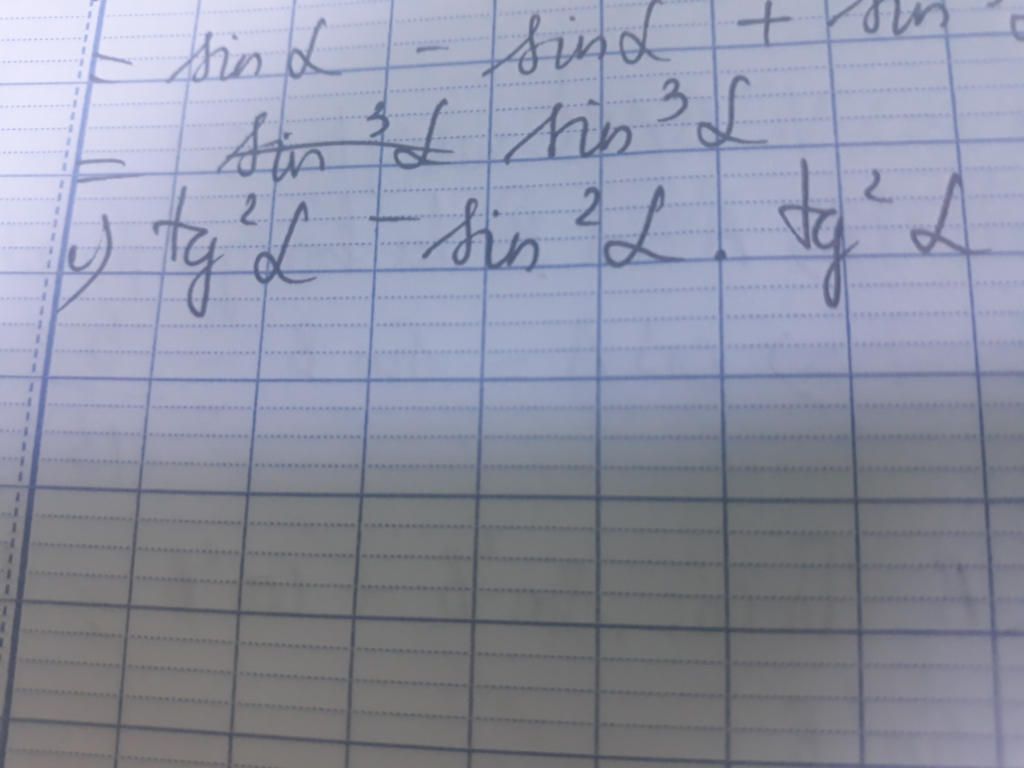 = sin α - sin α + sin
= sin³ α sin³ α
c) tg² α - sin² α . tg² α